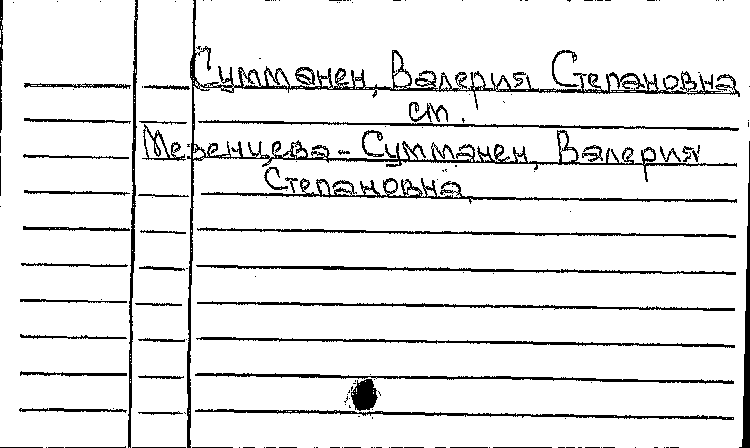 Суммонен, Валерия Степановна
см.
Мезенцева-Суммонен, Валерия
Степановна